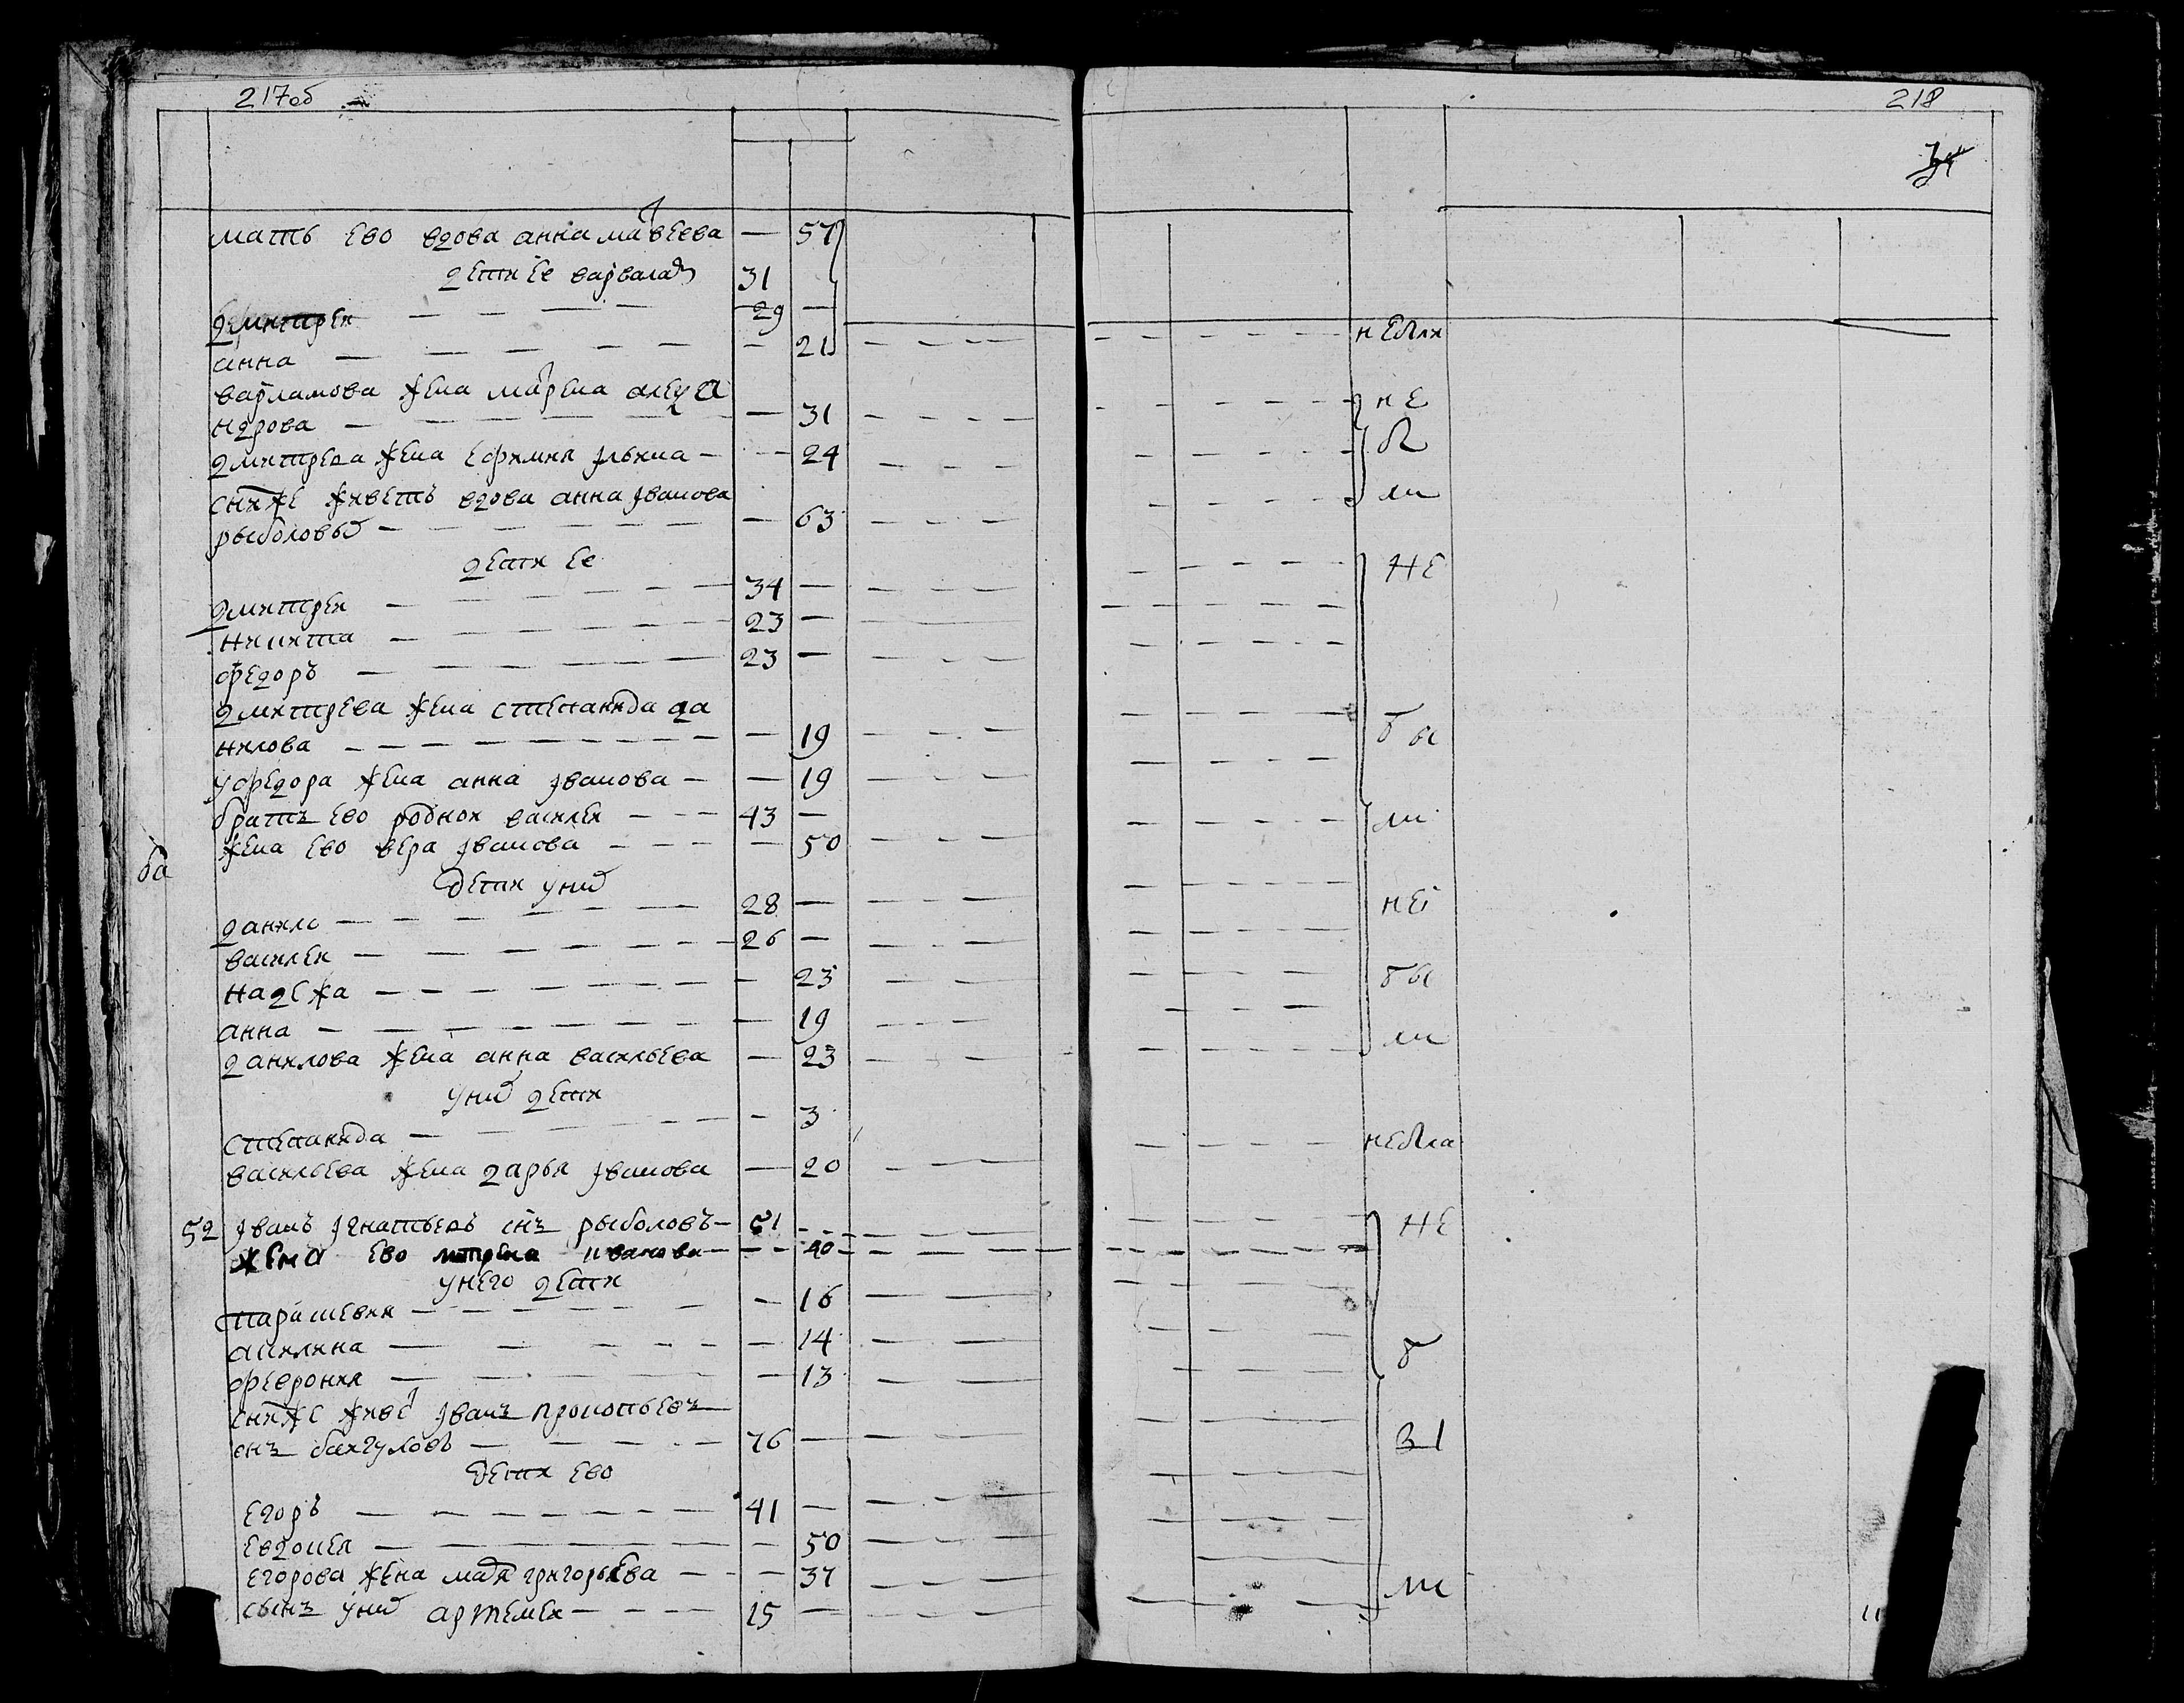 217об
218
мать ево вдова анна матвеева — 57
дети ее варвалам 31
дмитреи — 29 —
анна — 21 — небыли
варламова жена марена алеѯа
ндрова — 31 — не
дмитрева жена ефимия ильина — 24 — бы
сними же живетъ вдова анна Iванова ли
рыболовых — 63
дети ее не
дмитреи — 34 —
никита — 23 —
федоръ — 23 —
дмитрева жена степанида да
нилова — 19 — бы
у федора жена анна Iванова — 19
братъ ево родной василеи — 43 — ли
жена ево вера Iванова — 50
дети у них
данило — 28 — не
василеи — 26 —
надежа — 23 бы
анна — 19
данилова жена анна васильева — 23 ли
у них дети
степанида — 3
васильева жена дарья Iванова — 20
небыла
52 Iванъ Iгнатьевъ снъ рыболовъ — 51 не
жена ево матрена иванова — 40
у него дети
парасковия — 16
акилина — 14 б
феврония — 13
снимиже живет Iванъ прокопьевъ
снъ бахгуловъ — 76 — вы
дети ево
егоръ — 41 —
евдокея — 50
егорова жена мавра григорьева — 37 ли
сынъ у них артемеи — 15 —